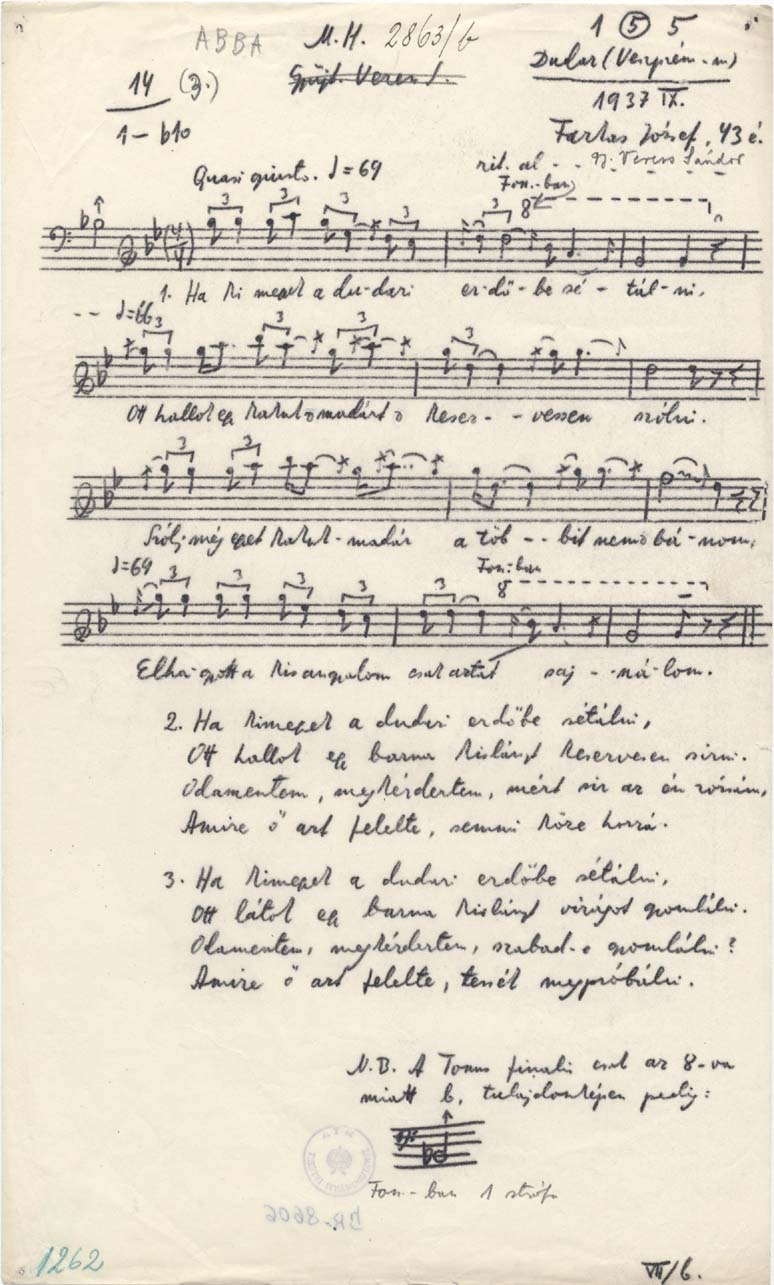 ABBA M.H. 2863/b 1 5 5
Gyűjt. Veress.
Dudar (Veszprém-m)
14 (3.)
1937 IX.
1 – b10
Farkas József, 43 é.
Gy: Veress Sándor
Quasi giusto. ♩=69 rit. al - -
Fon.-ban
8
3 3 3 3 3
1. Ha ki megek a du-dari er-dő-be sé - tál-ni,
- - ♩=66
3 3 3 3
Ott hallok egy kakukmadárt keser - - vessen szólni.
3 3
Szólj még egyet kakuk-madár a töb - - bit nem bá-nom,
♩=69 Fon:-ban
8
3 3 3 3 3
Elhagyott a kis angyalom csak aztat saj - - ná-lom.
2. Ha kimegek a dudari erdőbe sétálni,
Ott hallok egy barna kislányt keservesen sírni.
Odamentem, megkérdertem, mért sír az én rózsám,
Amire ő azt felelte, semmi köze hozzá.
3. Ha kimegek a dudari erdőbe sétálni,
Ott látok egy barna kislányt virágot gyomlálni.
Odamentem, megkérdertem, szabad-e gyomlálni?
Amire ő azt felelte, tessék megpróbálni.
N.B. A Tonus finalis csak az 8-va
miatt b, tulajdonképen pedig:
Fon-ban 1 strófa
BR-8606
1262
VII/6.